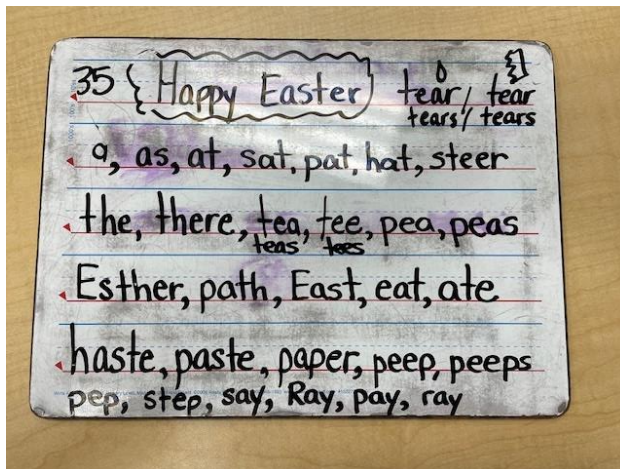 35 Happy Easter tear/ tear
tears/ tears
a, as, at, sat, pat, hat, steer
the, there, tea, tee, pea, peas
teas tees
Esther, path, East, eat, ate
haste, paste, paper, peep, peeps
pep, step, say, Ray, pay, ray